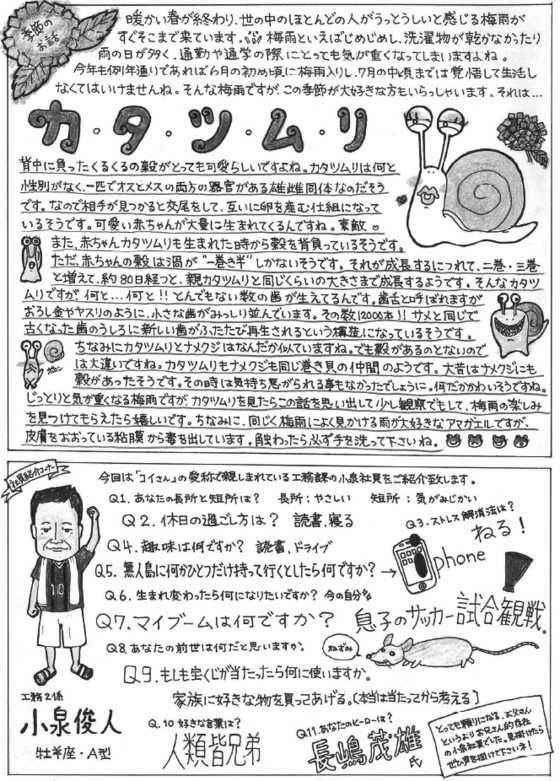 季節の
お話
暖かい春が終わり、世の中のほとんどの人がうっとうしいと感じる梅雨が
すぐそこまで来ています。梅雨といえばじめじめし、洗濯物が乾かなかったり
雨の日が多く、通勤や通学の際にとっても気が重くなってしまいますよね。
今年も例年通りであれば6月の初め頃に梅雨入りし、7月の中頃までは覚悟して生活し
なくてはいけませんね。そんな梅雨ですが、この季節が大好きな方もいらっしゃいます。それは…
カ・タ・ツ・ム・リ
背中に負ったくるくるの殻がとっても可愛らしいですよね。カタツムリは何と
性別がなく、一匹でオスとメスの両方の器官がある雄雌同体なのだそう
です。なので相手が見つかると交尾をして、互いに卵を産む仕組になって
いるそうです。可愛い赤ちゃんが大量に生まれてくるんですね。素敵♡
また、赤ちゃんカタツムリも生まれた時から殻を背負っているそうです。
ただ、赤ちゃんの殻は渦が“一巻き半”しかないそうです。それが成長するにつれて、二巻・三巻
と増えて、約80日経つと、親カタツムリと同じくらいの大きさまで成長するようです。そんなカタツ
ムリですが何と…何と!!とんでもない数の歯が生えてるんです。歯舌と呼ばれますが
おろし金やヤスリのように、小さな歯がみっしり並んでいます。その数12000本!!サメと同じで
古くなった歯のうしろに新しい歯がふたたび再生されるという構造になっているそうです。
ちなみにカタツムリとナメクジはなんだか似ていますね。でも殻があるのとないので
は大違いですね。カタツムリもナメクジも同じ巻き貝の仲間のようです。大昔はナメクジにも
殻があったそうです。その時は気持ち悪がられる事もなかったでしょうに。何だかかわいそうですね。
じっとりと気が重くなる梅雨ですが、カタツムリを見たらこの話を思い出して少し観察でもして、梅雨の楽しみ
を見つけてもらえたら嬉しいです。ちなみに、同じく梅雨によく見かける雨が大好きなアマガエルですが、
皮膚をおおっている粘膜から毒を出しています。触わったら必ず手を洗って下さいね。
社員紹介コーナー
今回は「コイさん」の愛称で親しまれている工務課の小泉社員をご紹介致します。
Q1. あなたの長所と短所は? 長所:やさしい 短所:気がみじかい
Q2. 休日の過ごし方は? 読書、寝る
Q3. ストレス解消法は?
ねる!
Q4. 趣味は何ですか? 読書、ドライブ
Q5. 無人島に何かひとつだけ持って行くとしたら何ですか?→
phone
Q6. 生まれ変わったら何になりたいですか? 今の自分
Q7. マイブームは何ですか? 息子のサッカー試合観戦。
Q8. あなたの前世は何だと思いますか。
ねずみ
Q9. もしも宝くじが当たったら何に使いますか。
家族に好きな物を買ってあげる。(本当は当たってから考える)
10
工務2係
小泉俊人
牡羊座・A型
Q.10 好きな言葉は?
人類皆兄弟
Q11. あなたのヒーローは?
長嶋茂雄氏
とっても頼りになる、お父さん
というよりお兄さん的存在
の小泉社員でした。見掛けたら
ぜひ声を掛けて下さいネ!